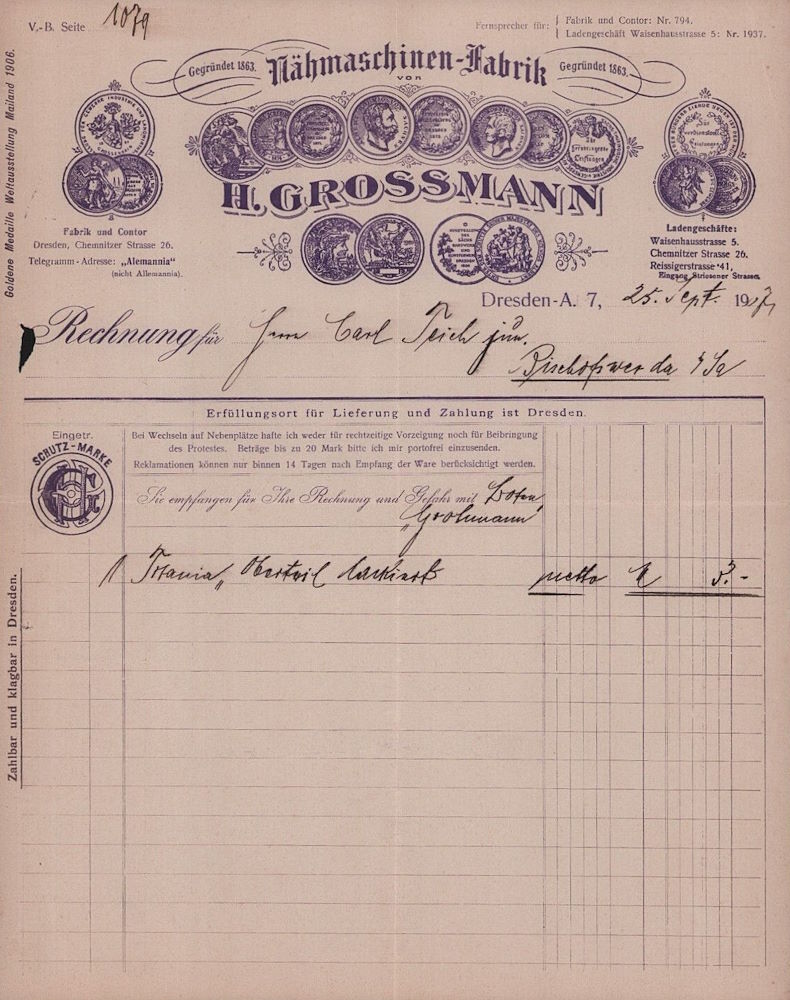 V.-B. Seite 1079
Fernsprecher für: Fabrik und Contor: Nr. 794.
Ladengeschäft Waisenhausstrasse 5: Nr. 1937.
Goldene Medaille Weltausstellung Mailand 1906.
Gegründet 1863.
Nähmaschinen-Fabrik
Gegründet 1863.
von
H. GROSSMANN
Fabrik und Contor
Dresden, Chemnitzer Strasse 26.
Telegramm-Adresse: „Alemannia“
(nicht Allemannia).
Ladengeschäfte:
Waisenhausstrasse 5.
Chemnitzer Strasse 26.
Reissigerstrasse 41,
Eingang Striesener Strasse.
Dresden-A. 7, 25. Sept. 1917
Rechnung für Herrn Carl Teich jun.
Bischofswerda i/Sa
Erfüllungsort für Lieferung und Zahlung ist Dresden.
Eingetr.
SCHUTZ-MARKE
Bei Wechseln auf Nebenplätze hafte ich weder für rechtzeitige Vorzeigung noch für Beibringung
des Protestes. Beträge bis zu 20 Mark bitte ich mir portofrei einzusenden.
Reklamationen können nur binnen 14 Tagen nach Empfang der Ware berücksichtigt werden.
Sie empfangen für Ihre Rechnung und Gefahr mit Boten
„Grohmann“
1 Titania „ Oberteil lackiert netto M 3.-
Zahlbar und klagbar in Dresden.